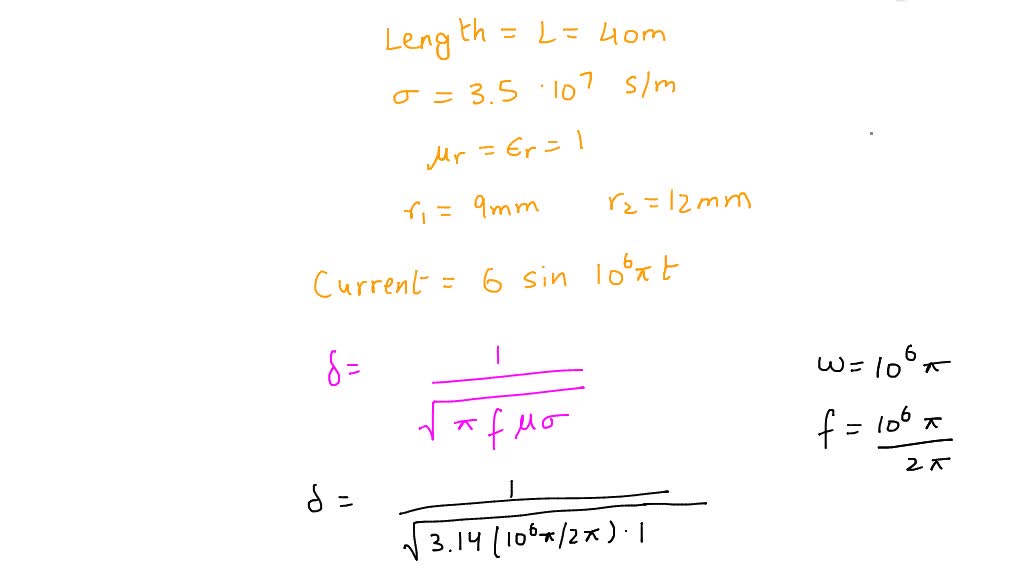 Length = L = 40m
σ = 3.5 · 10⁷ s/m
μr = εr = 1
r₁ = 9mm r₂ = 12mm
Current = 6 sin 10⁶πt
δ = 1 / √(π f μσ)
ω = 10⁶ π
f = 10⁶ π / 2π
δ = 1 / √(3.14 (10⁶π/2π) · 1